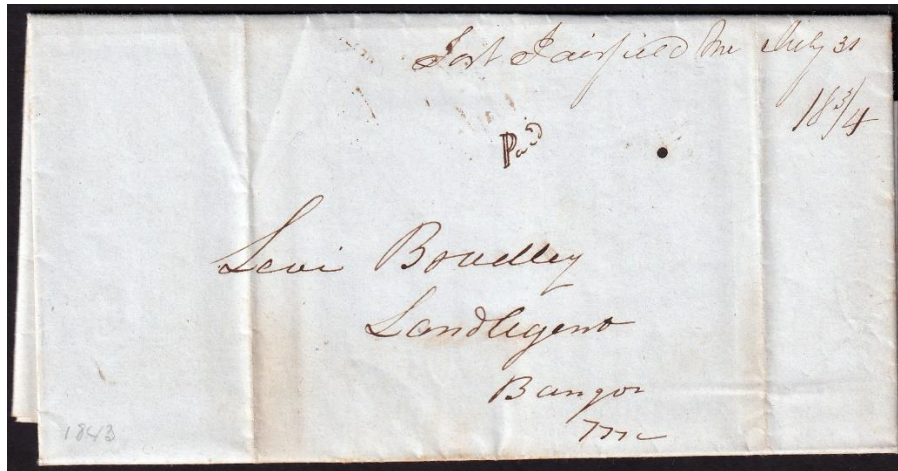 Fort Fairfield Me July 31
18 3/4
Paid
Levi Bradley
Land Agent
Bangor
Me
1843